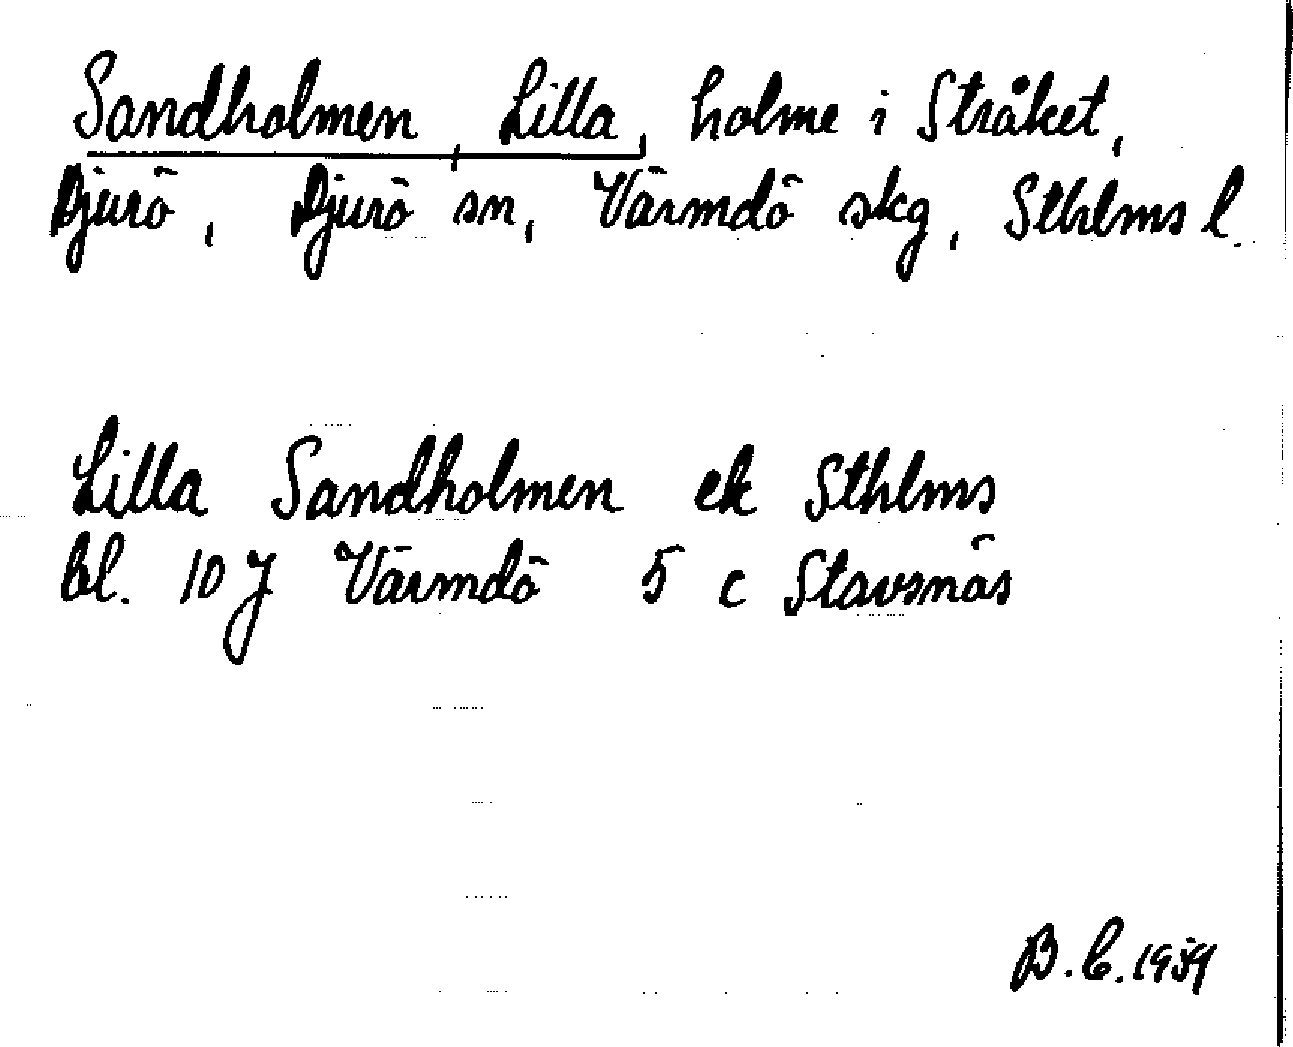 Sandholmen, Lilla, holme i Stråket,
Djurö, Djurö sn, Värmdö skg, Sthlms l.
Lilla Sandholmen ek Sthlms
bl. 10 J Värmdö 5 c Stavsnäs
B. C. 1959